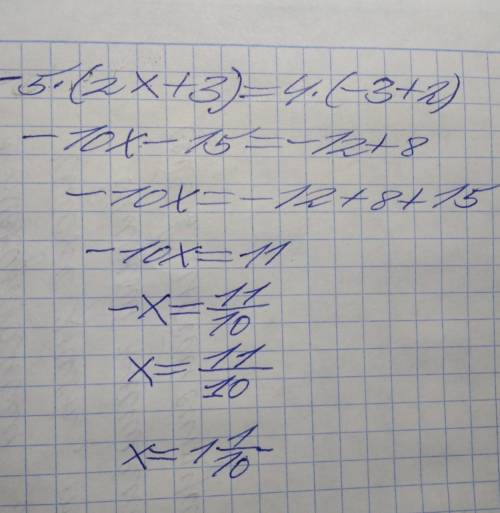 -5·(2x+3)=4·(-3+2)
-10x-15=-12+8
-10x=-12+8+15
-10x=11
-x=11/10
x=11/10
x=1 1/10